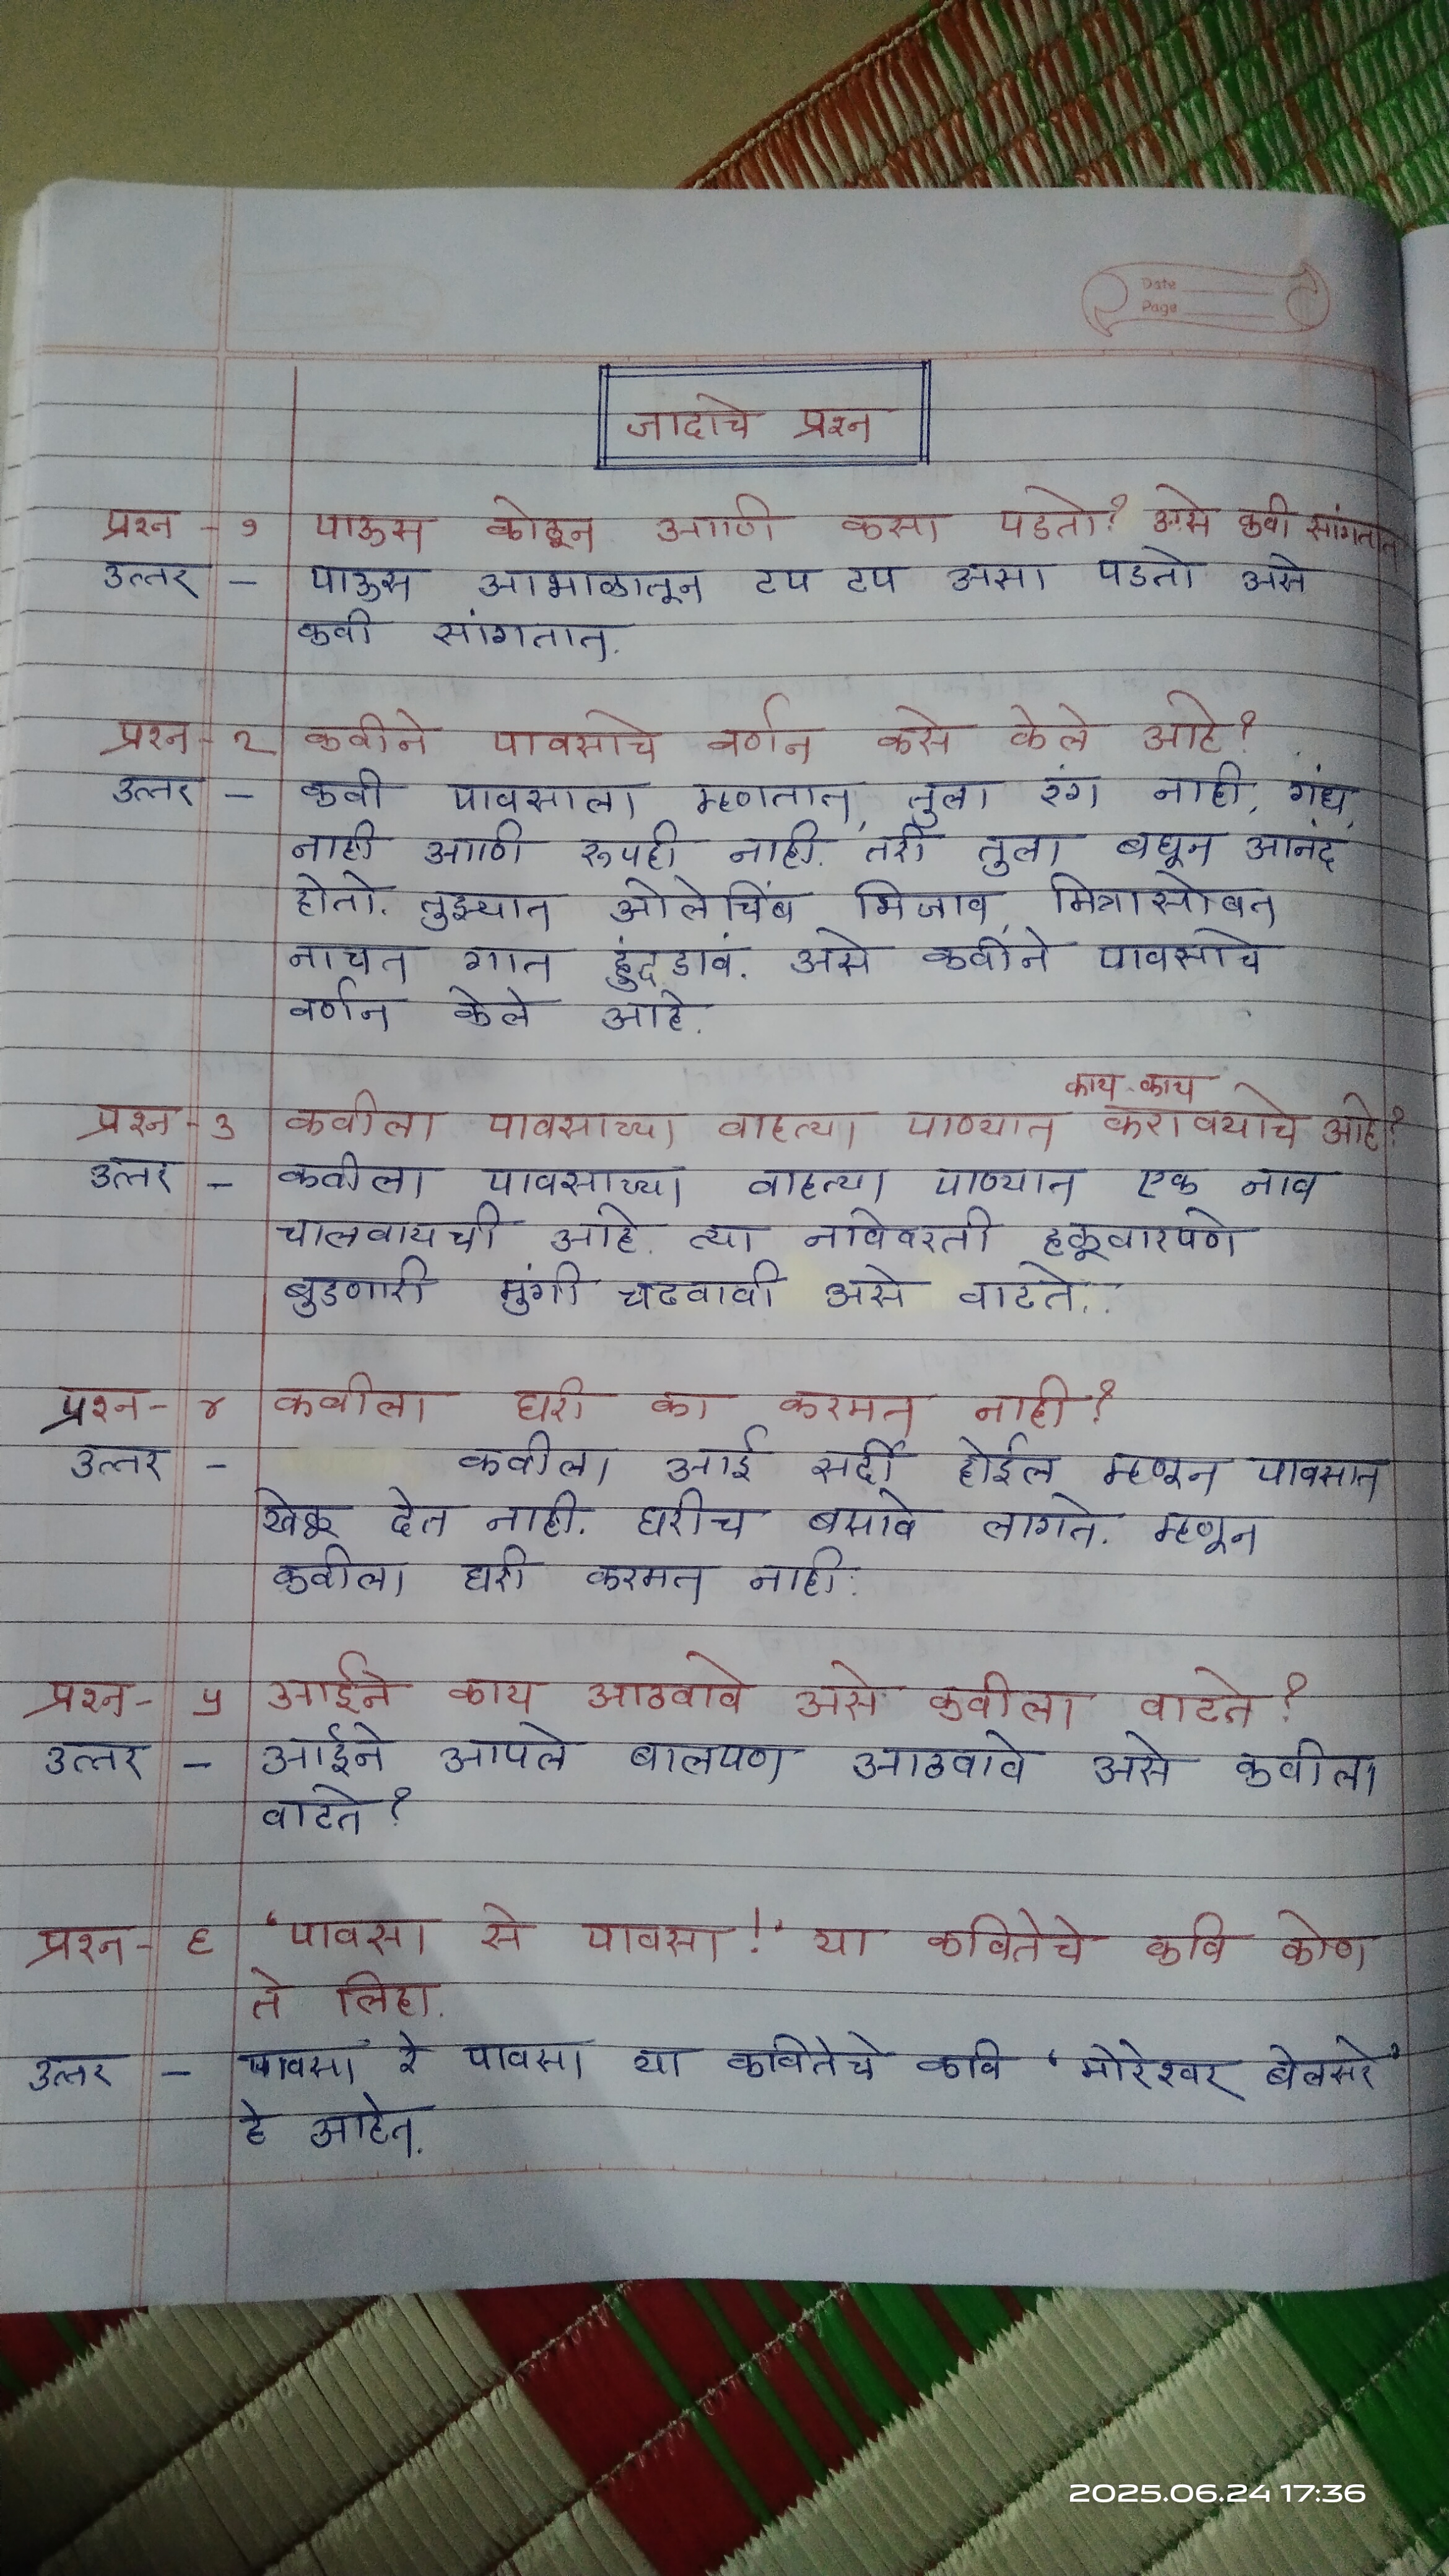 Date
Page
जादाचे प्रश्न
प्रश्न - १ पाऊस कोठून आणि कसा पडतो? असे कवी सांगतात
उत्तर - पाऊस आभाळातून टप टप असा पडतो असे
कवी सांगतात.
प्रश्न - २ कवीने पावसाचे वर्णन कसे केले आहे?
उत्तर - कवी पावसाला म्हणतात, तुला रंग नाही, गंध
नाही आणि रूपही नाही. तरी तुला बघून आनंद
होतो. तुझ्यात ओलेचिंब भिजाव, मित्रासोबत
नाचत गात हुंदडावं. असे कवीने पावसाचे
वर्णन केले आहे.
काय-काय
प्रश्न - ३ कवीला पावसाच्या वाहत्या पाण्यात करावयाचे आहे?
उत्तर - कवीला पावसाच्या वाहत्या पाण्यात एक नाव
चालवायची आहे. त्या नावेवरती हळूवारपणे
बुडणारी मुंगी चढवावी असे वाटते..
प्रश्न - ४ कवीला घरी का करमत नाही?
उत्तर - कवीला आई सर्दी होईल म्हणून पावसात
खेळू देत नाही. घरीच बसावे लागते. म्हणून
कवीला घरी करमत नाही.
प्रश्न - ५ आईने काय आठवावे असे कवीला वाटते?
उत्तर - आईने आपले बालपण आठवावे असे कवीला
वाटते?
प्रश्न - ६ 'पावसा रे पावसा!' या कवितेचे कवि कोण
ते लिहा.
उत्तर - पावसा रे पावसा या कवितेचे कवि 'मोरेश्वर बेलसरे'
हे आहेत.
2025.06.24 17:36